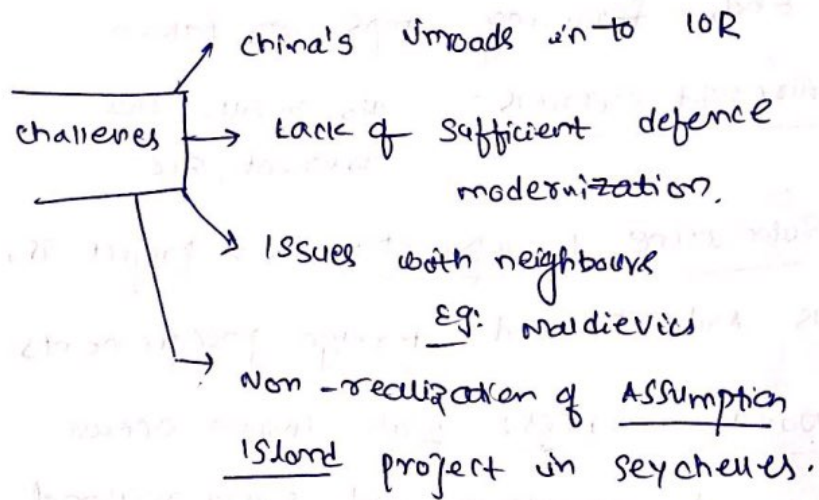 China's inroads in to IOR
challenes
Lack of sufficient defence
modernization.
Issues with neighbours
Eg: Maldievics
Non-realization of Assumption
Island project in Seychelles.